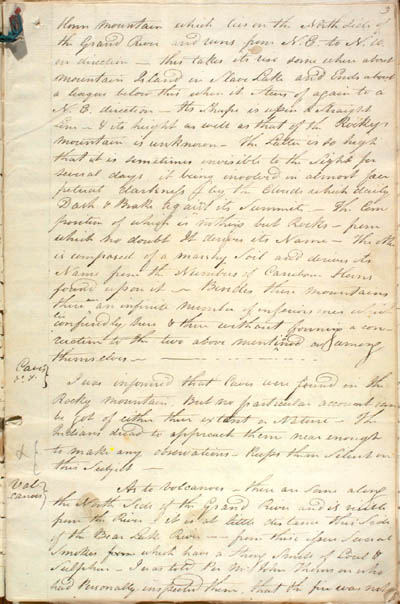 3
Horn Mountain which lies on the North Side of
the Grand River and runs from N.E. to N.W.
in direction – this takes its rise some where about
mountain Island in Slave Lake and Ends about
a league below this when it Steers of again to a
N.E. direction – Its Shape is upon a straight
line – & its height as well as that of the Rocky
mountain is unknown – the Latter is so high
that it is sometimes invisible to the Sight for
several days it being involved in almost per
petual darkness by the Clouds which daily
Dash & Brake against its Summit – The Com
position of which is nothing but Rocks – from
which no doubt It derives its Name – the other
is composed of a marshy Soil and derives its
Name from the Number of Caribou Horns
found upon it – Besides these mountains
there an infinite number of inferior ones
confusedly here & there without forming a con
nection to the two above mentioned or among
themselves –
Caves
&c. &.
I was informed that Caves were found in the
Rocky mountain. But no particular account can
be got of either their extent or Nature – The
Indians dread to approach them near enough
to make any observations – keeps them Silent on
this Subject –
Vol
canoes
As to Volcanoes – there are some along
the North Side of the Grand River and
from the River. It is at little distance this side
of the Bear Lake River – from these issue several
Smokes from which have a Strong Smell of Coal &
Sulphur – I was told by Mr. John Thomson who
had Personally inspected them, that the fire was not